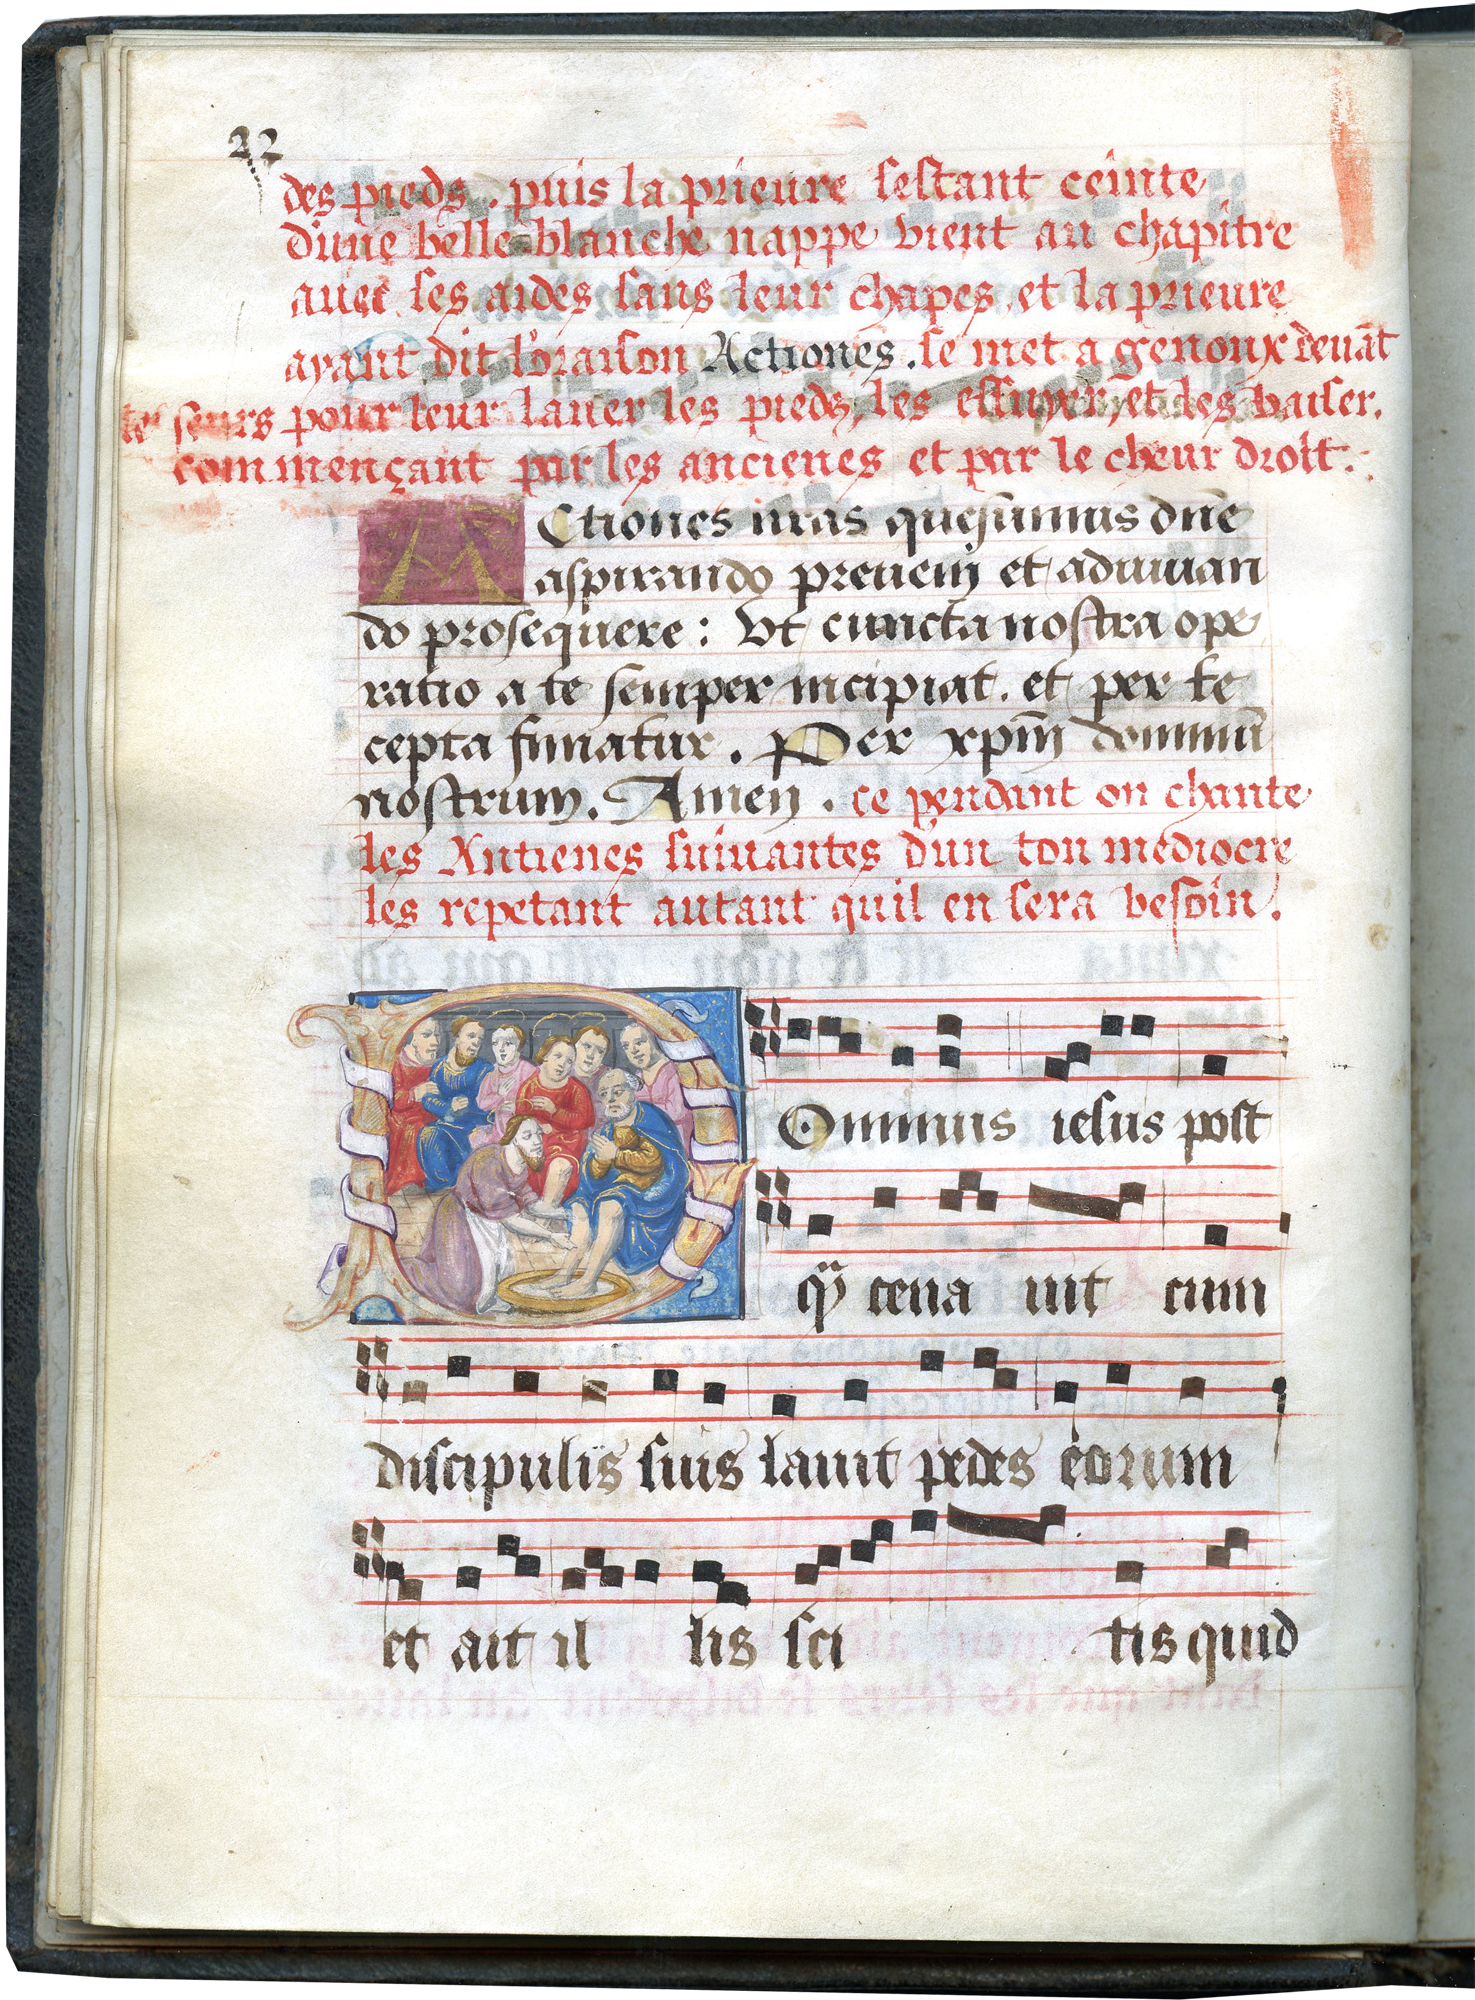 22
des pieds. puis la prieure sestant ceinte
d'une belle blanche nappe vient au chapitre
auec ses aides sans leur chapes, et la prieure
ayant dit l'oraison Actiones. se met a genoux deuāt
les seurs pour leur lauer les pieds, les essuyer, et les baiser.
commençant par les ancienes et par le chœur droit.
ACtiones nr̄as quesumus dn̄e
aspirando preueni et adiuuan
do prosequere: Vt cuncta nostra ope
ratio a te semper incipiat. et per te
cepta finiatur. Per xp̄m dominū
nostrum. Amen. ce pendant on chante
les Antienes suiuantes d'un ton mediocre
les repetant autant quil en sera besoin.
DOminus iesus post
q̄ cena uit cum
discipulis suis lauit pedes eorum
et ait il lis sci tis quid